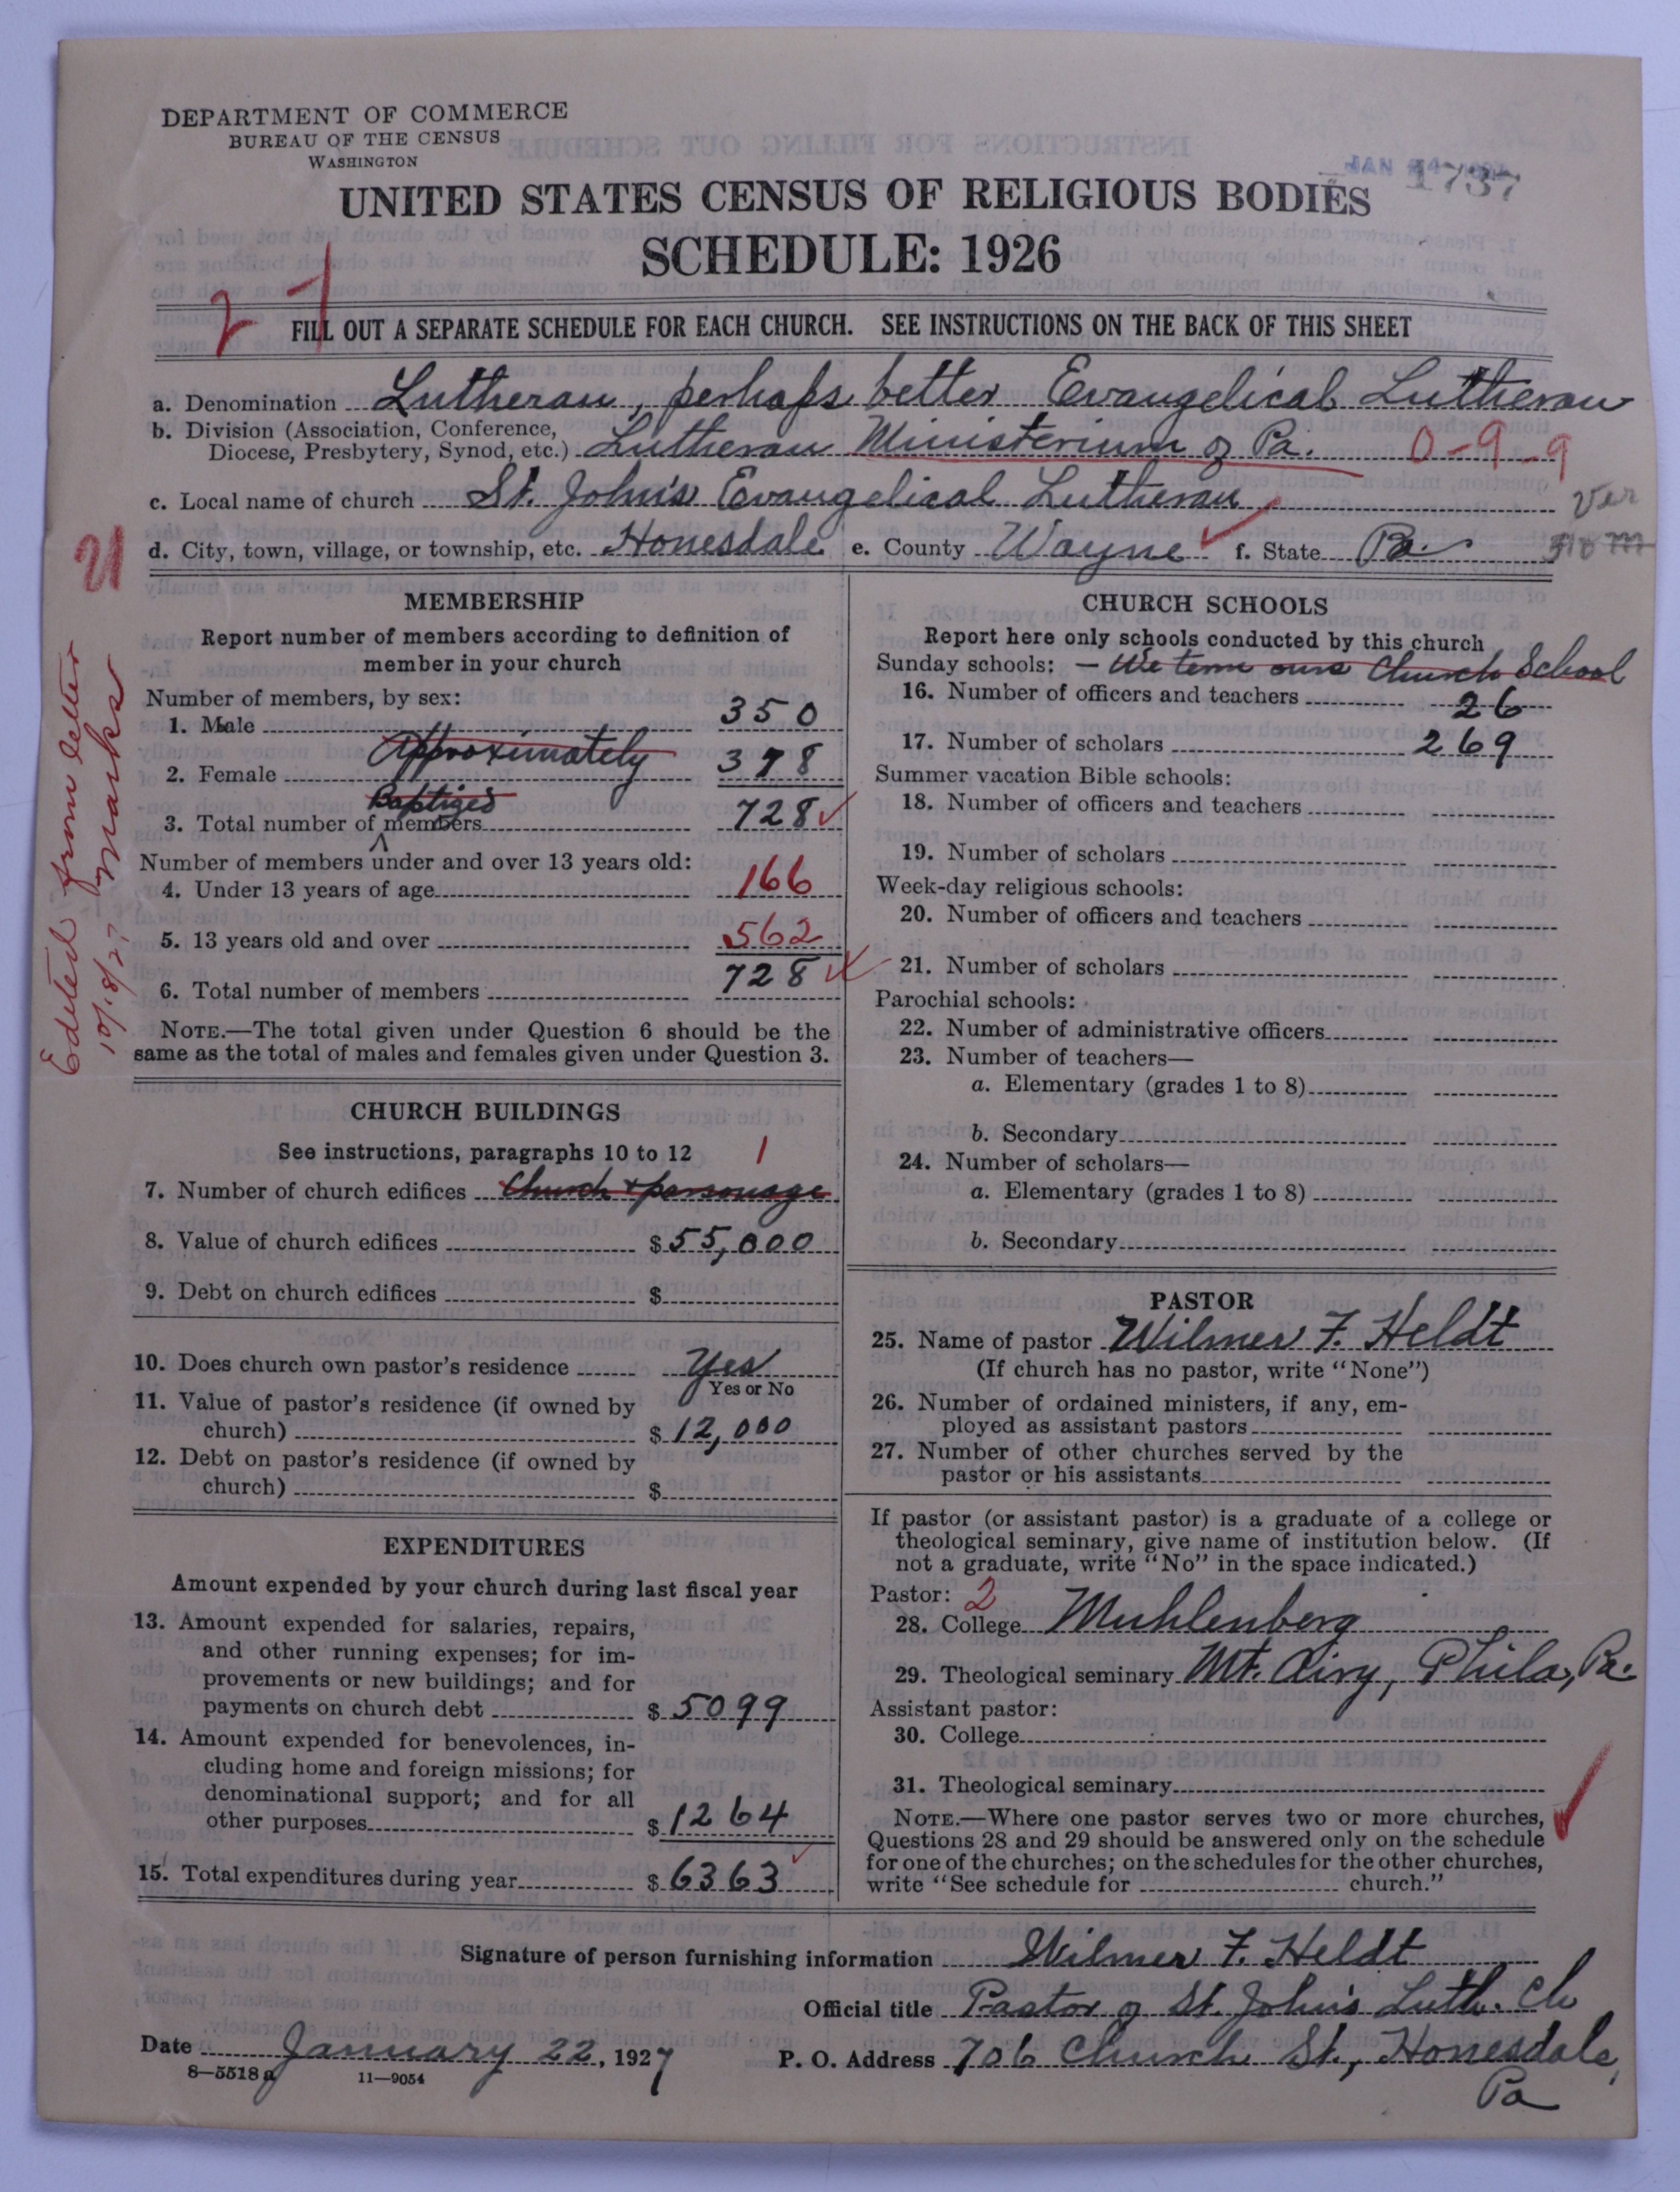 DEPARTMENT OF COMMERCE
BUREAU OF THE CENSUS
WASHINGTON
1737
UNITED STATES CENSUS OF RELIGIOUS BODIES
SCHEDULE: 1926
FILL OUT A SEPARATE SCHEDULE FOR EACH CHURCH. SEE INSTRUCTIONS ON THE BACK OF THIS SHEET
a. Denomination Lutheran, perhaps better Evangelical Lutheran
b. Division (Association, Conference,
Diocese, Presbytery, Synod, etc.) Lutheran Ministerium of Pa. 0-9-9
c. Local name of church St. John's Evangelical Lutheran
Ver
d. City, town, village, or township, etc. Honesdale e. County Wayne f. State Pa.
Edited from letter
10/18/27 Marks
MEMBERSHIP
Report number of members according to definition of
member in your church
Number of members, by sex:
1. Male 350
Approximately
2. Female 378
Baptized
3. Total number of members 728
Number of members under and over 13 years old:
4. Under 13 years of age 166
5. 13 years old and over 562
6. Total number of members 728
NOTE.—The total given under Question 6 should be the
same as the total of males and females given under Question 3.
CHURCH BUILDINGS
See instructions, paragraphs 10 to 12 1
7. Number of church edifices Church & parsonage
8. Value of church edifices $ 55,000
9. Debt on church edifices $
10. Does church own pastor's residence Yes
Yes or No
11. Value of pastor's residence (if owned by
church) $ 12,000
12. Debt on pastor's residence (if owned by
church) $
EXPENDITURES
Amount expended by your church during last fiscal year
13. Amount expended for salaries, repairs,
and other running expenses; for im-
provements or new buildings; and for
payments on church debt $ 5099
14. Amount expended for benevolences, in-
cluding home and foreign missions; for
denominational support; and for all
other purposes $ 1264
15. Total expenditures during year $ 6363
CHURCH SCHOOLS
Report here only schools conducted by this church
Sunday schools: — We term ours Church School
16. Number of officers and teachers 26
17. Number of scholars 269
Summer vacation Bible schools:
18. Number of officers and teachers
19. Number of scholars
Week-day religious schools:
20. Number of officers and teachers
21. Number of scholars
Parochial schools:
22. Number of administrative officers
23. Number of teachers—
a. Elementary (grades 1 to 8)
b. Secondary
24. Number of scholars—
a. Elementary (grades 1 to 8)
b. Secondary
PASTOR
25. Name of pastor Wilmer F. Heldt
(If church has no pastor, write "None")
26. Number of ordained ministers, if any, em-
ployed as assistant pastors
27. Number of other churches served by the
pastor or his assistants
If pastor (or assistant pastor) is a graduate of a college or
theological seminary, give name of institution below. (If
not a graduate, write "No" in the space indicated.)
Pastor: 2
28. College Muhlenberg
29. Theological seminary Mt. Airy, Phila, Pa.
Assistant pastor:
30. College
31. Theological seminary
NOTE.—Where one pastor serves two or more churches,
Questions 28 and 29 should be answered only on the schedule
for one of the churches; on the schedules for the other churches,
write "See schedule for church."
Signature of person furnishing information Wilmer F. Heldt
Official title Pastor of St. John's Luth. Ch
Date January 22, 1927 P. O. Address 706 Church St., Honesdale,
Pa
8—5518a 11—9054